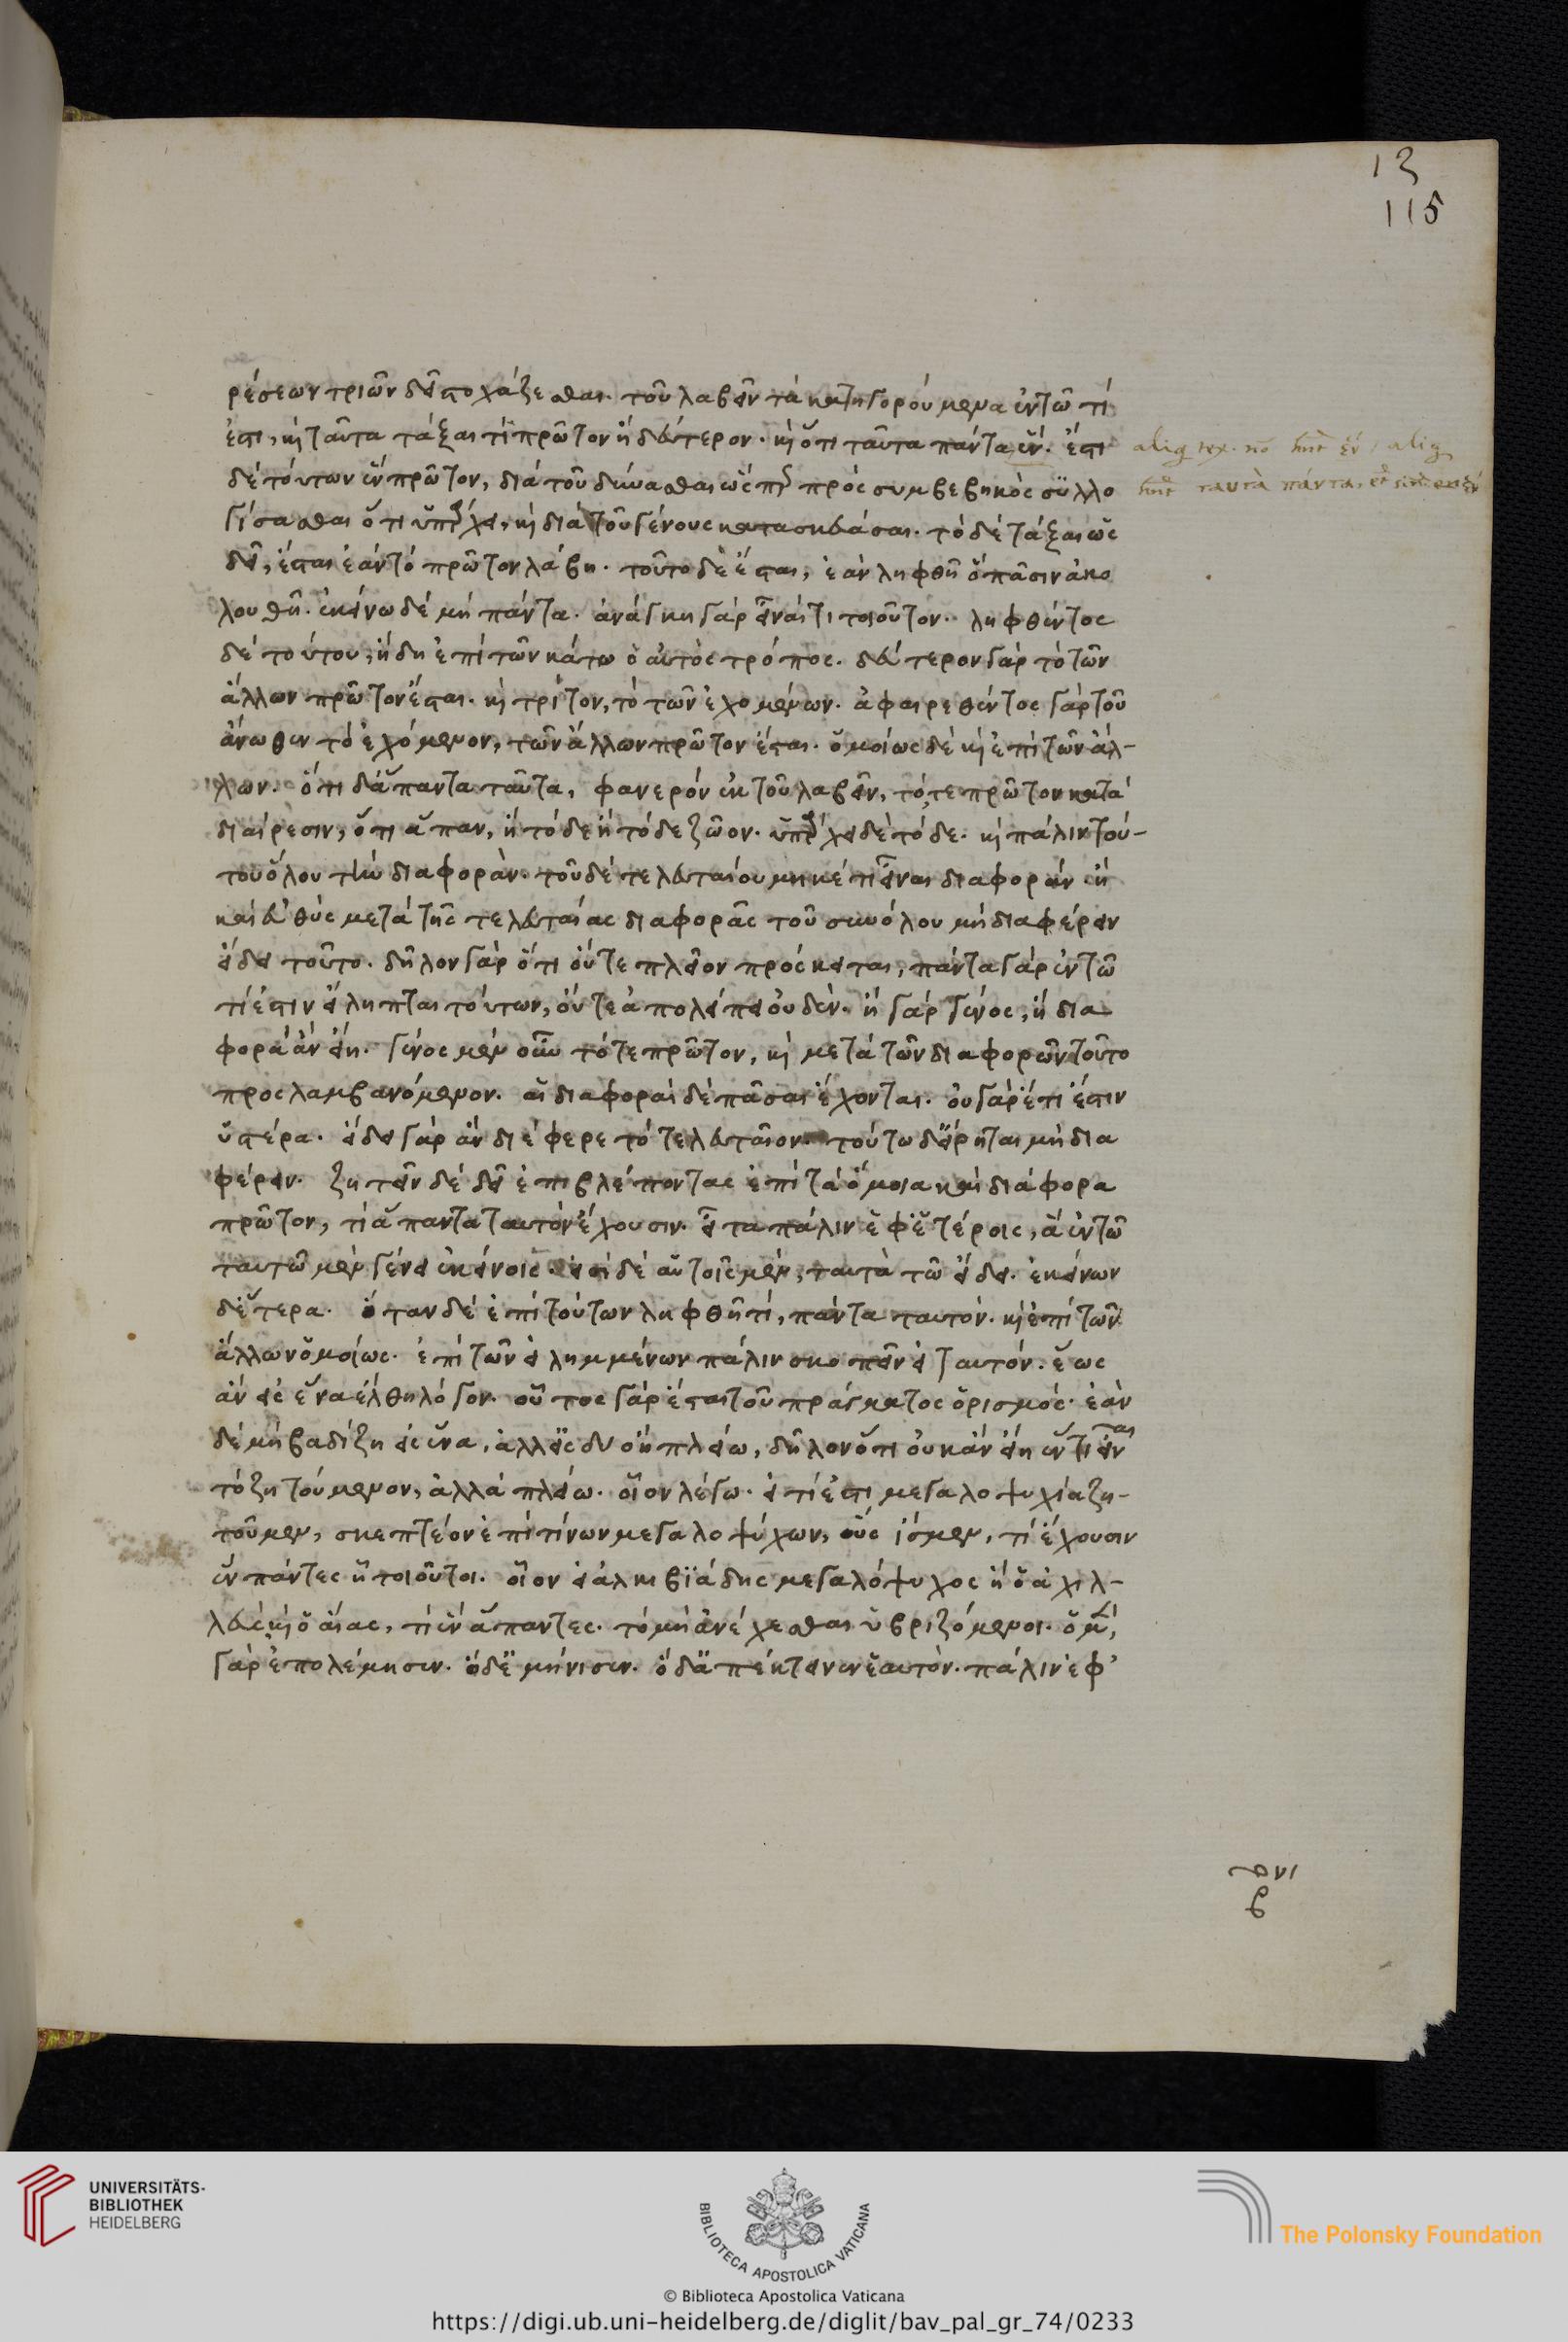 13
115
ρέσεων τριῶν δεῖ στοχάζεσθαι. τοῦ λαβεῖν τὰ κατηγορούμενα ἐν τῶ τί
ἐστι, κ̀ ταῦτα τάξαι τί πρῶτον ἢ δεύτερον. κ̀ ὅτι ταῦτα πάντα ἕν. ἔστι
δὲ τούτων ἓν πρῶτον, διὰ τοῦ δύνασθαι ὥσπερ πρὸς συμβεβηκὸς συλλο
γίσασθαι ὅτι ὑπάρχει, κ̀ διὰ τοῦ γένους κατασκευάσαι. τὸ δὲ τάξαι ὡς
δεῖ, ἔσται ἐὰν τὸ πρῶτον λάβη. τοῦτο δὲ ἔσται, ἐὰν ληφθῆ ὃ πᾶσιν ἀκο
λουθῆ. ἐκείνω δὲ μὴ πάντα. ἀνάγκη γὰρ εἶναί τι τοιοῦτον. ληφθέντος
δὲ τούτου, ἤδη ἐπὶ τῶν κάτω ὁ αὐτὸς τρόπος. δεύτερον γὰρ τὸ τῶν
ἄλλων πρῶτον ἔσται. κ̀ τρίτον, τὸ τῶν ἐχομένων. ἀφαιρεθέντος γὰρ τοῦ
ἄνωθεν τὸ ἐχόμενον, τῶν ἄλλων πρῶτον ἔσται. ὁμοίως δὲ κ̀ ἐπὶ τῶν ἄλ-
λων. ὅτι δ' ἅπαντα ταῦτα, φανερὸν ἐκ τοῦ λαβεῖν, τό τε πρῶτον κατὰ
διαίρεσιν, ὅτι ἅπαν, ἢ τόδε ἢ τόδε ζῶον. ὑπάρχει δὲ τόδε. κ̀ πάλιν τού-
του ὅλου τὴν διαφοράν. τοῦ δὲ τελευταίου μηκέτι εἶναι διαφοράν. ἢ
καὶ εὐθὺς μετὰ τῆς τελευταίας διαφορᾶς τοῦ συνόλου μὴ διαφέρειν
εἴδει τοῦτο. δῆλον γὰρ ὅτι οὔτε πλεῖον πρόσκειται, πάντα γὰρ ἐν τῶ
τί ἐστιν εἴληπται τούτων, οὔτε ἀπολείπει οὐδέν. ἢ γὰρ γένος, ἢ δια
φορὰ ἂν εἴη. γένος μὲν οὖν τό τε πρῶτον, κ̀ μετὰ τῶν διαφορῶν τοῦτο
προσλαμβανόμενον. αἱ διαφοραὶ δὲ πᾶσαι ἔχονται. οὐ γὰρ ἔτι ἔστιν
ὑστέρα. εἴδει γὰρ ἂν διέφερε τὸ τελευταῖον. τούτω δ' εἴρηται μὴ δια
φέρειν. ζητεῖν δὲ δεῖ ἐπιβλέποντας ἐπὶ τὰ ὅμοια καὶ διάφορα
πρῶτον, τί ἅπαντα ταυτὸν ἔχουσιν. εἶτα πάλιν ἐφ' ἑτέροις, ἃ ἐν τῶ
ταυτῶ μὲν γένει ἐκείνοις. εἰσὶ δὲ αὑτοῖς μὲν, ταυτὰ τῶ εἴδει. ἐκείνων
δ' ἕτερα. ὅταν δὲ ἐπὶ τούτων ληφθῆ τί, πάντα ταυτόν. κ̀ ἐπὶ τῶν
ἄλλων ὁμοίως. ἐπὶ τῶν εἰλημμένων πάλιν σκοπεῖν εἰ ταυτόν. ἕως
ἂν εἰς ἕνα ἔλθη λόγον. οὗτος γὰρ ἔσται τοῦ πράγματος ὁρισμός. ἐὰν
δὲ μὴ βαδίζη εἰς ἕνα, ἀλλ' εἰς δύο ἢ πλείω, δῆλον ὅτι οὐκ ἂν εἴη ἕν τι εἶναι
τὸ ζητούμενον, ἀλλὰ πλείω. οἷον λέγω. εἰ τί ἐστι μεγαλοψυχία ζη-
τοῦμεν, σκεπτέον ἐπί τίνων μεγαλοψύχων, οὓς ἴσμεν, τί ἔχουσιν
ἓν πάντες ἧ τοιοῦτοι. οἷον εἰ ἀλκιβϊάδης μεγαλόψυχος ἢ ὁ ἀχιλ-
λεὺς κ̀ ὁ αἴας, τί ἓν ἅπαντες. τὸ μὴ ἀνέχεσθαι ὑβριζόμενοι. ὁ μὲν
γὰρ ἐπολέμησεν. ὁ δ' ἐμήνισεν. ὁ δ' ἀπέκτεινεν ἑαυτόν. πάλιν ἐφ'
UNIVERSITÄTS-
BIBLIOTHEK
HEIDELBERG
BIBLIOTECA APOSTOLICA VATICANA
The Polonsky Foundation
© Biblioteca Apostolica Vaticana
https://digi.ub.uni-heidelberg.de/diglit/bav_pal_gr_74/0233